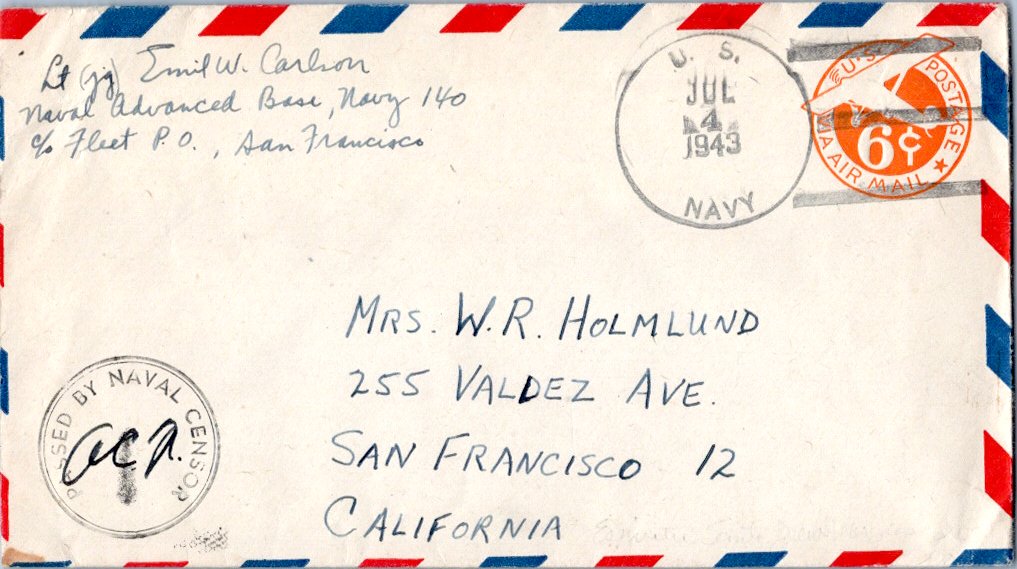 Lt (jg) Emil W. Carlson
Naval Advanced Base, Navy 140
c/o Fleet P.O., San Francisco
U. S.
JUL
4
1943
NAVY
U.S. POSTAGE
6¢
VIA AIR MAIL
MRS. W.R. HOLMLUND
255 VALDEZ AVE.
SAN FRANCISCO 12
CALIFORNIA
PASSED BY NAVAL CENSOR